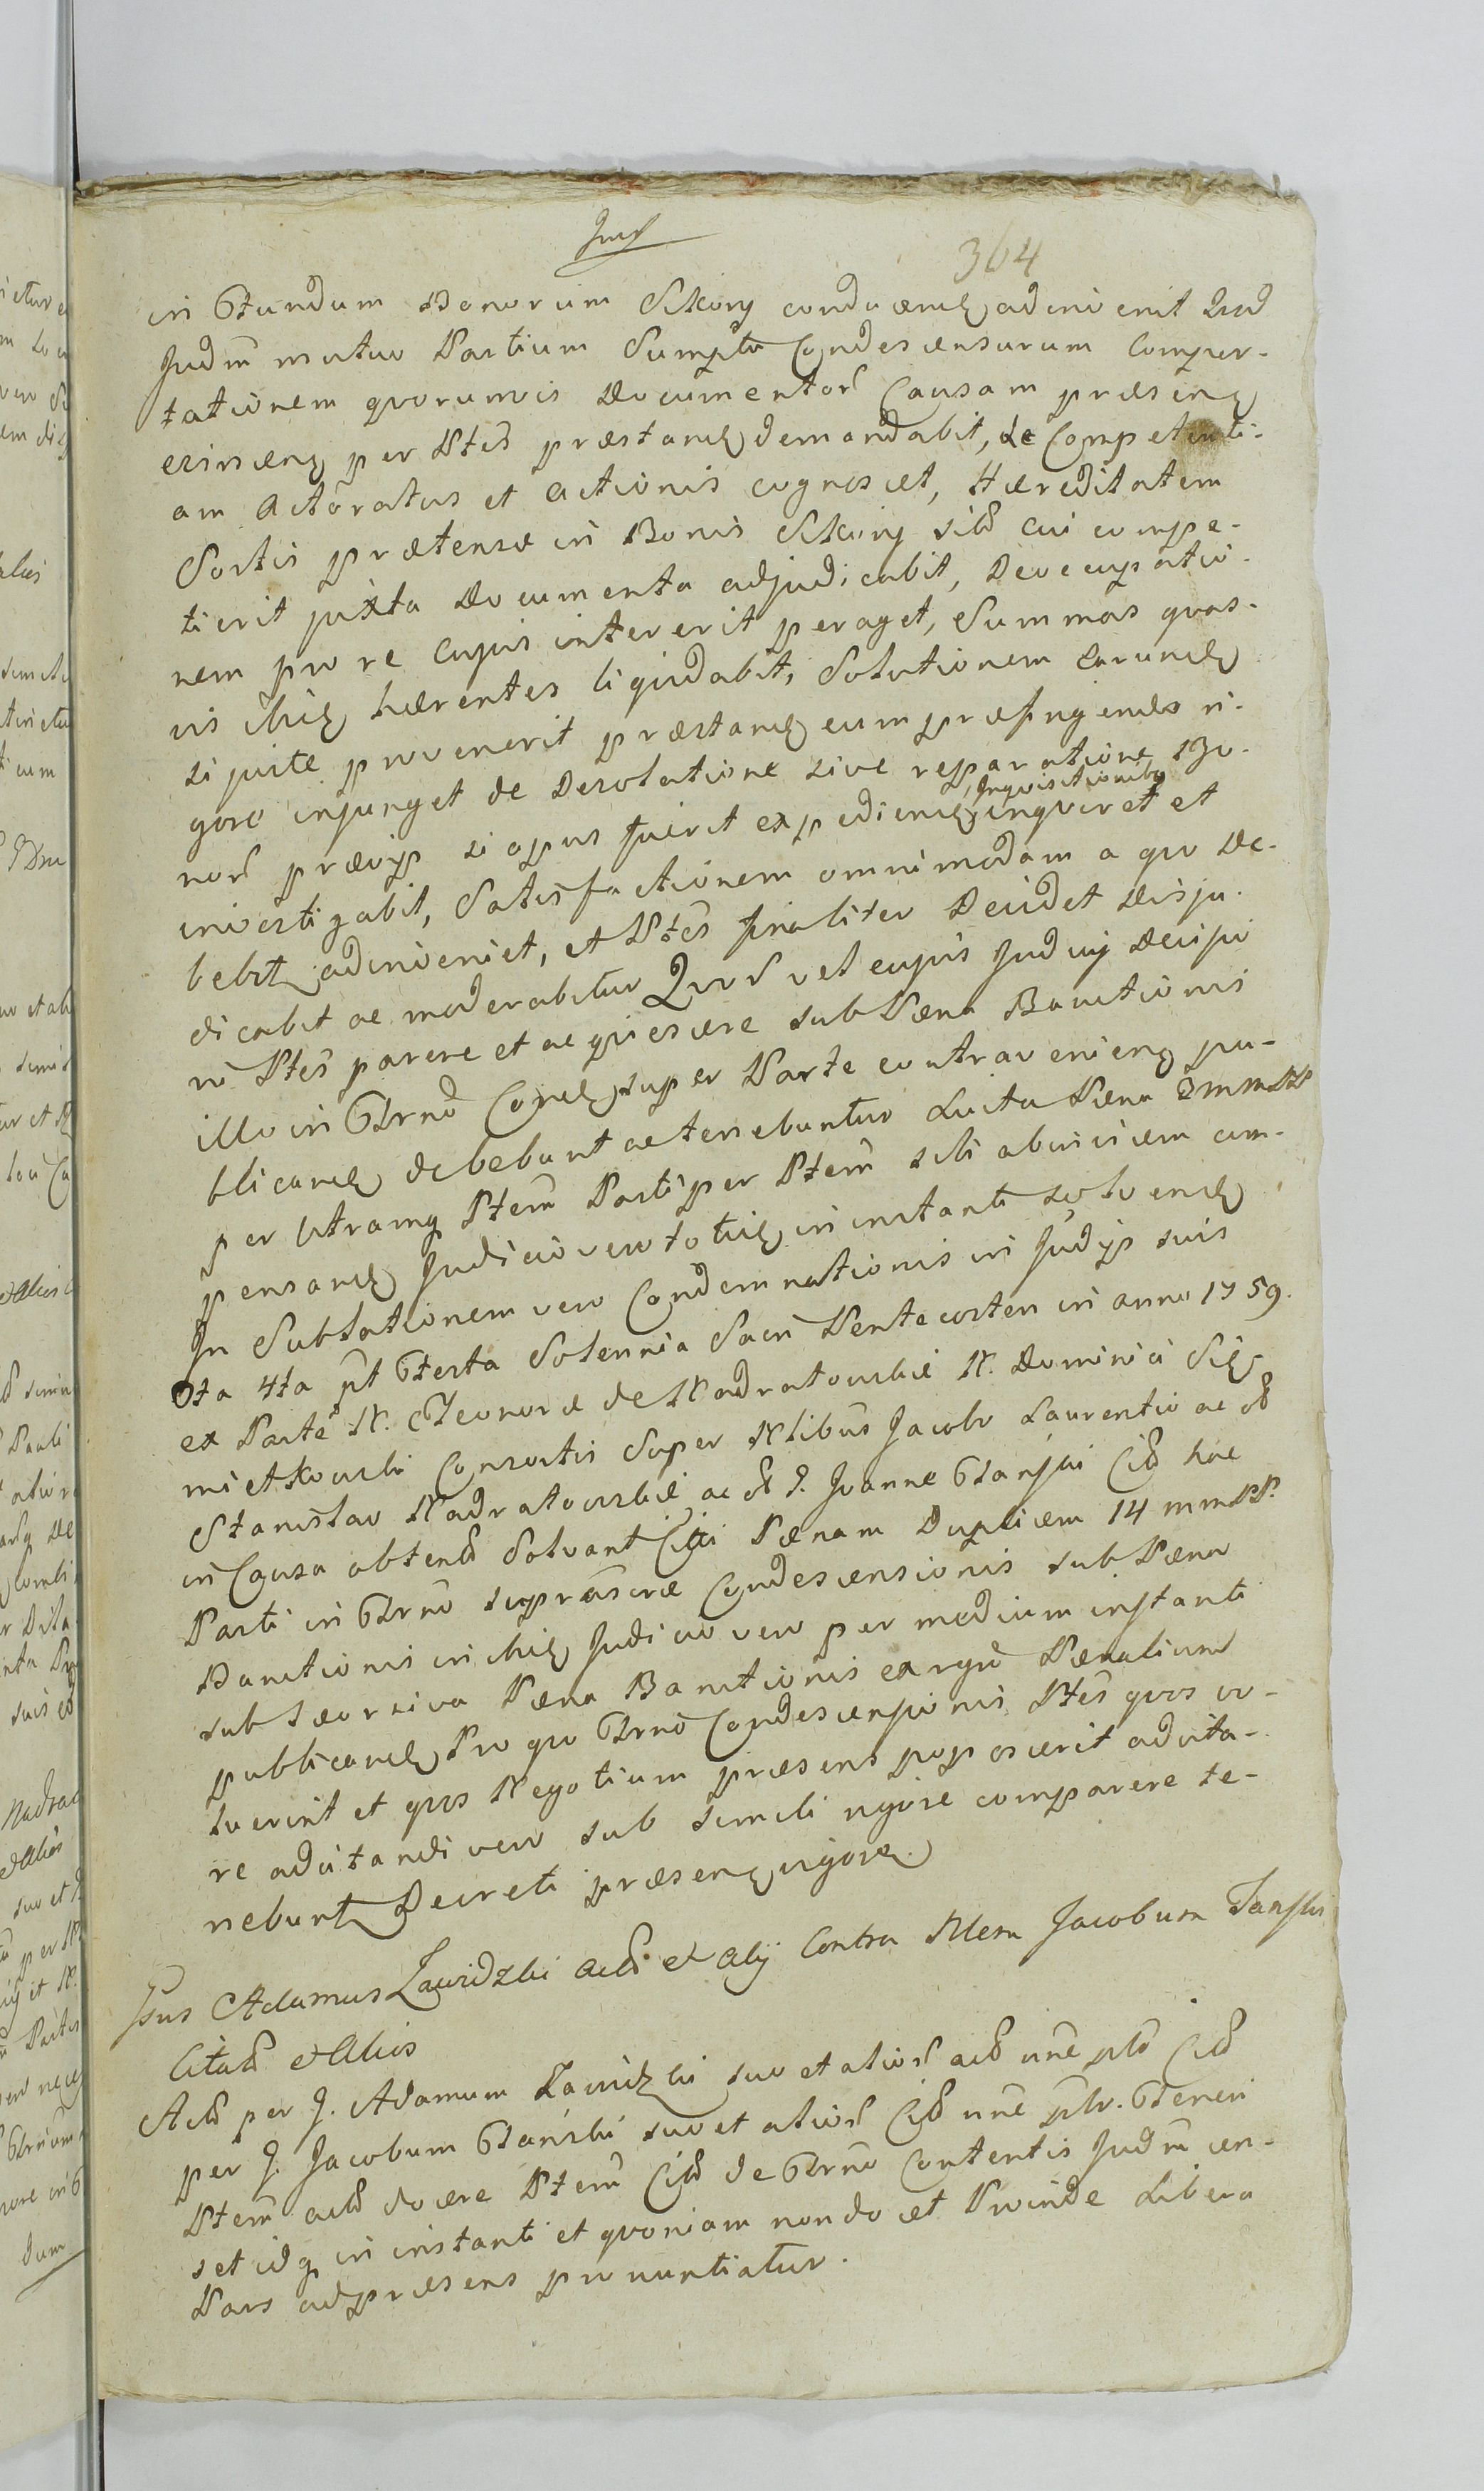 364
in Fundum Bonorum Skory condĕcend adinvenit Quod
Judm mutuo Partium Sumptu Condescensurum Compor-
tationem quorumvis Documentor Causam præsen
erincen per Ptes præstand demandabit, de Competenti-
am Actoratus et actionis cognoscet, Hæreditatem
Sortis prætensæ in Bonis Skory sibi cui compe-
tierit juxta Documenta adjudicabit, Deoccupatio-
nem pro re cujus intererit peraget, Summas quas-
vis ibid hærentes liquidabit, Solutionem earund
si juste provenerit præstand cum præfingendo ri-
gore injunget de Desolatione sive reparatione Bo-
nor prævijs si opus fuerit expediend Inquisitionibus inquiret et
investigabit, Satisfactionem omnimodam a quo de-
bebit adinveniet, et Ptes finaliter Decidet Disju-
dicabit ac moderabitur Quod vel cujus Judicij Decisio
ni Ptes parere et acquiescere sub Pæna Bannitionis
illo in Trno Cond super Parte contravenien pu-
blicand debebunt ac tenebuntur Luita Pæna 3 mmPP
per Utramq Ptem Parti per Ptem sibi abinvicem com-
pensand Judicio vero totid in instanti solvend
In Sublationem vero Condemnationis in Judijs suis
Fta 4ta pt Festa Solennia Sacri Pentecostes in anno 1759.
ex Parte N. Eleonoræ de Nadratowskie N. Dominici Sie-
mietkowski Consortis Super Nlibus Jacobo Laurentio ac
Stanislao Nadratowskie ac G. Joanne Tański Citt hac
in Causa obtent Solvant Citti Pænam Duplicem 14 mmPP.
Parti in Trno suprascræ Condescensionis sub Pæna
Bannitionis in ibid Judicio vero per medium instanti
sub seorsiva Pæna Bannitionis ex rgro Pænalium
publicand Pro quo Trno Condescensionis Ptes quos vo-
luerint et quos Negotium præsens poposcerit adcita-
re adcitandi vero sub simili rigore comparere te-
nebunt Decreti præsen vigore.
Gsus Adamus Zawidzki act et alij Contra Nlem Jacobum Tański
Citatt et Alios
Act per G. Adamum Zawidzki suo et alior act nne pto Citt
per G. Jacobum Tański suo et alior Citt nne ptr. Teneri
Ptem actt docere Ptem Citt de Trno Contentis Judm cen-
set idq in instanti et quoniam non docet Proinde Libera
Pars ad præsens pronuntiatur.